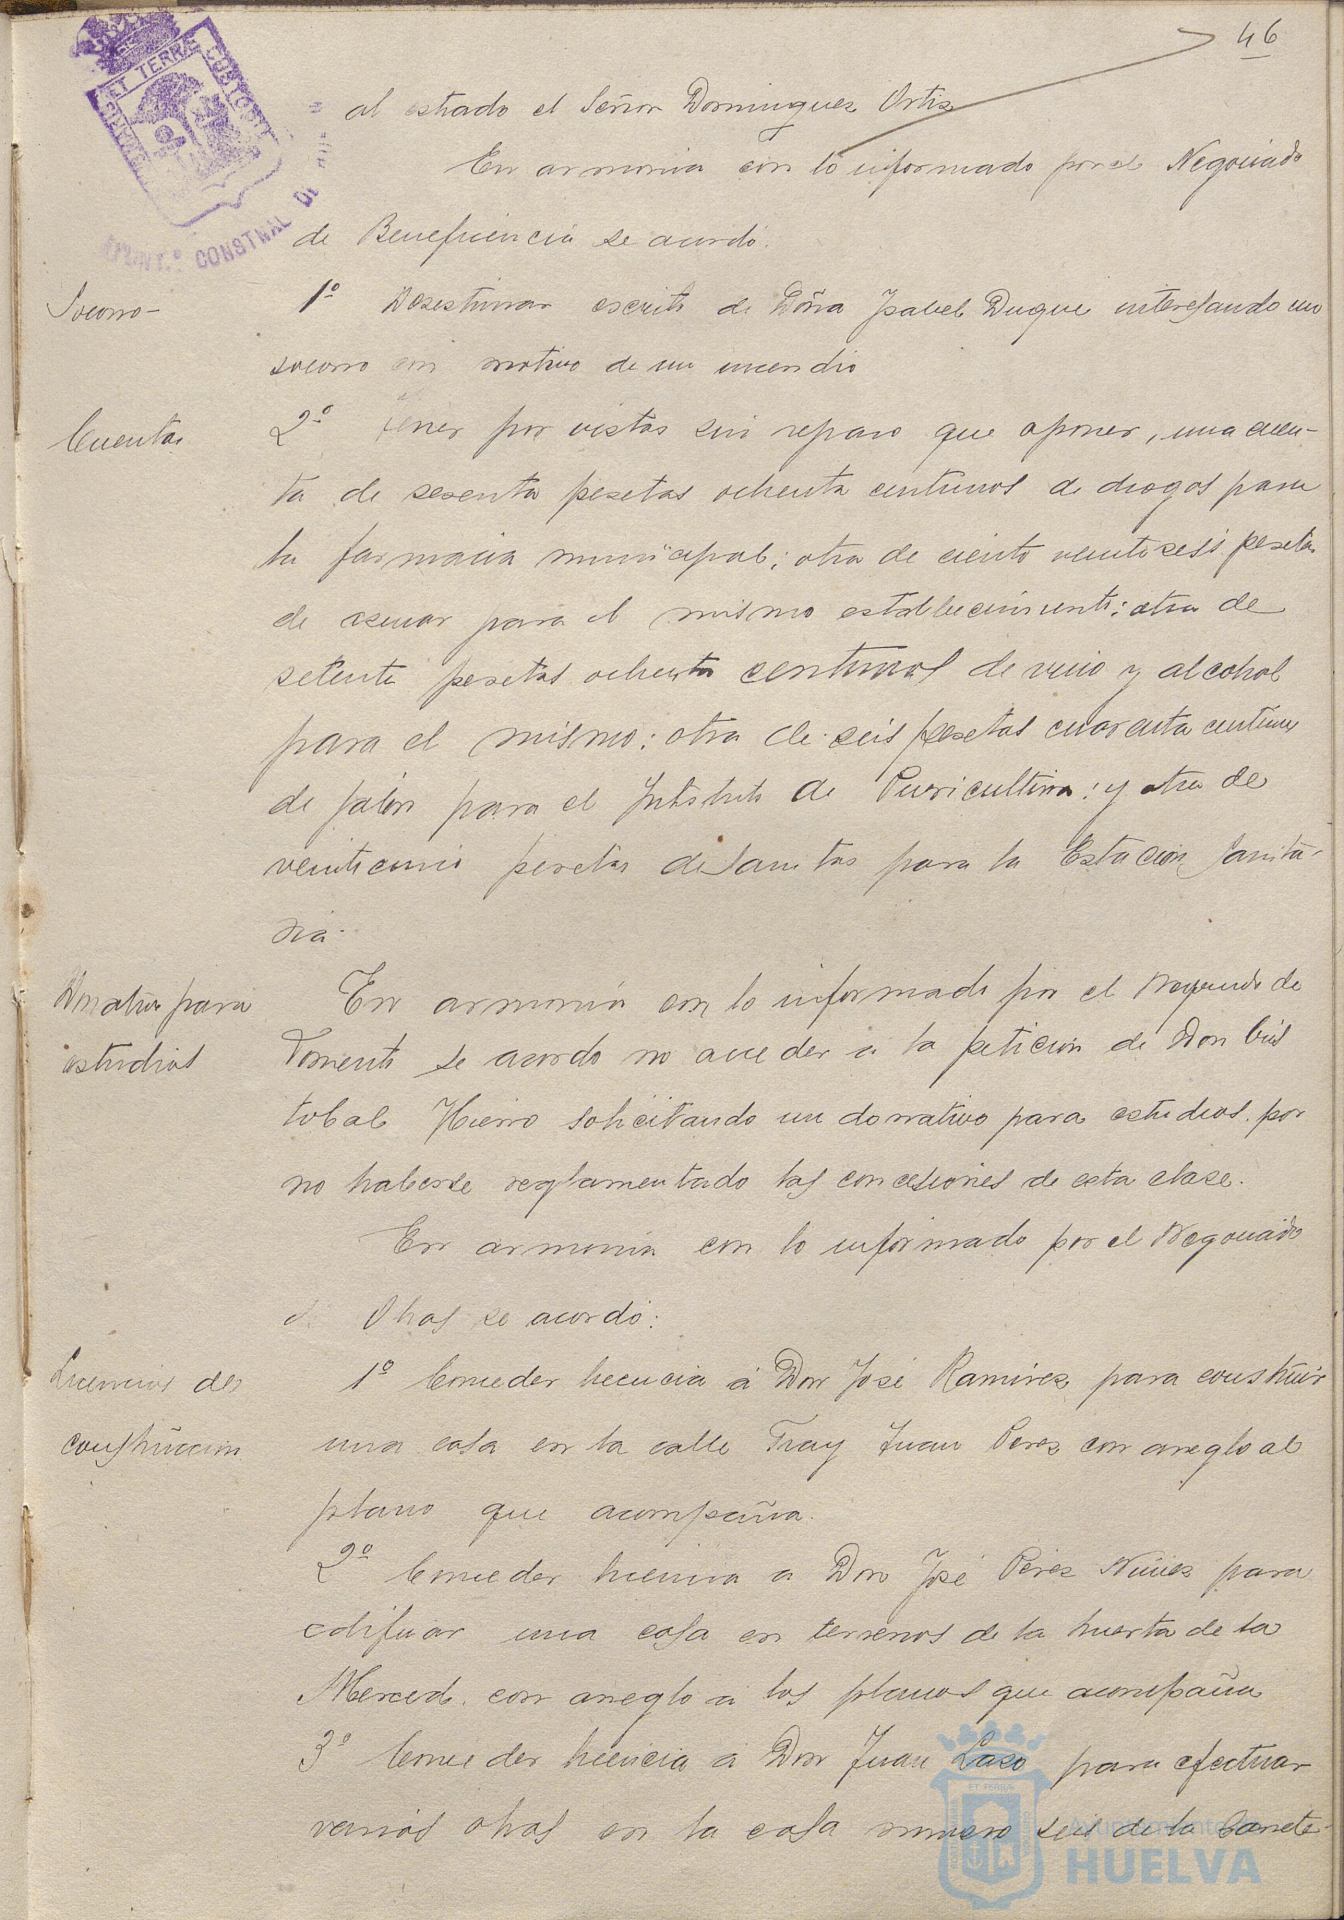 46
al estrado el Señor Dominguez Ortiz
En armonia con lo informado por el Negociado
de Beneficencia se acordó.
Socorro-
1º Desestimar escrito de Doña Isabel Duque interesando un
socorro con motivo de un incendio
Cuentas
2º Tener por vistas sin reparo que oponer, una cuen-
ta de sesenta pesetas ochenta centimos de drogas para
la farmacia municipal; otra de ciento veintiseis pesetas
de azucar para el mismo establecimiento; otra de
setenta pesetas ochenta centimos de vino y alcohol
para el mismo; otra de seis pesetas cuarenta centimos
de jabón para el Instituto de Puericultura; y otra de
veinticinco pesetas de Sanitas para la Estacion Sanita-
ria.
Donativo para
estudios
En armonia con lo informado por el Negociado de
Fomento se acordo no acceder a la peticion de Don Cris
tobal Hierro solicitando un donativo para estudios. por
no haberse reglamentado las concesiones de esta clase.
En armonia con lo informado por el Negociado
de Obras se acordó:
Licencias de
construccion
1º Conceder licencia á Don José Ramirez para construir
una casa en la calle Fray Juan Perez con arreglo al
plano que acompaña.
2º Conceder licencia a Don José Pérez Nuñez para
edificar una casa en terrenos de la huerta de la
Merced. con arreglo a los planos que acompaña
3º Conceder licencia á Don Juan Lazo para efectuar
varias obras en la casa numero seis de la Carrete-
ET TERRÆ
CUSTODIA
CONSTNAL DE
ET TERRÆ
Ayuntamiento de
HUELVA